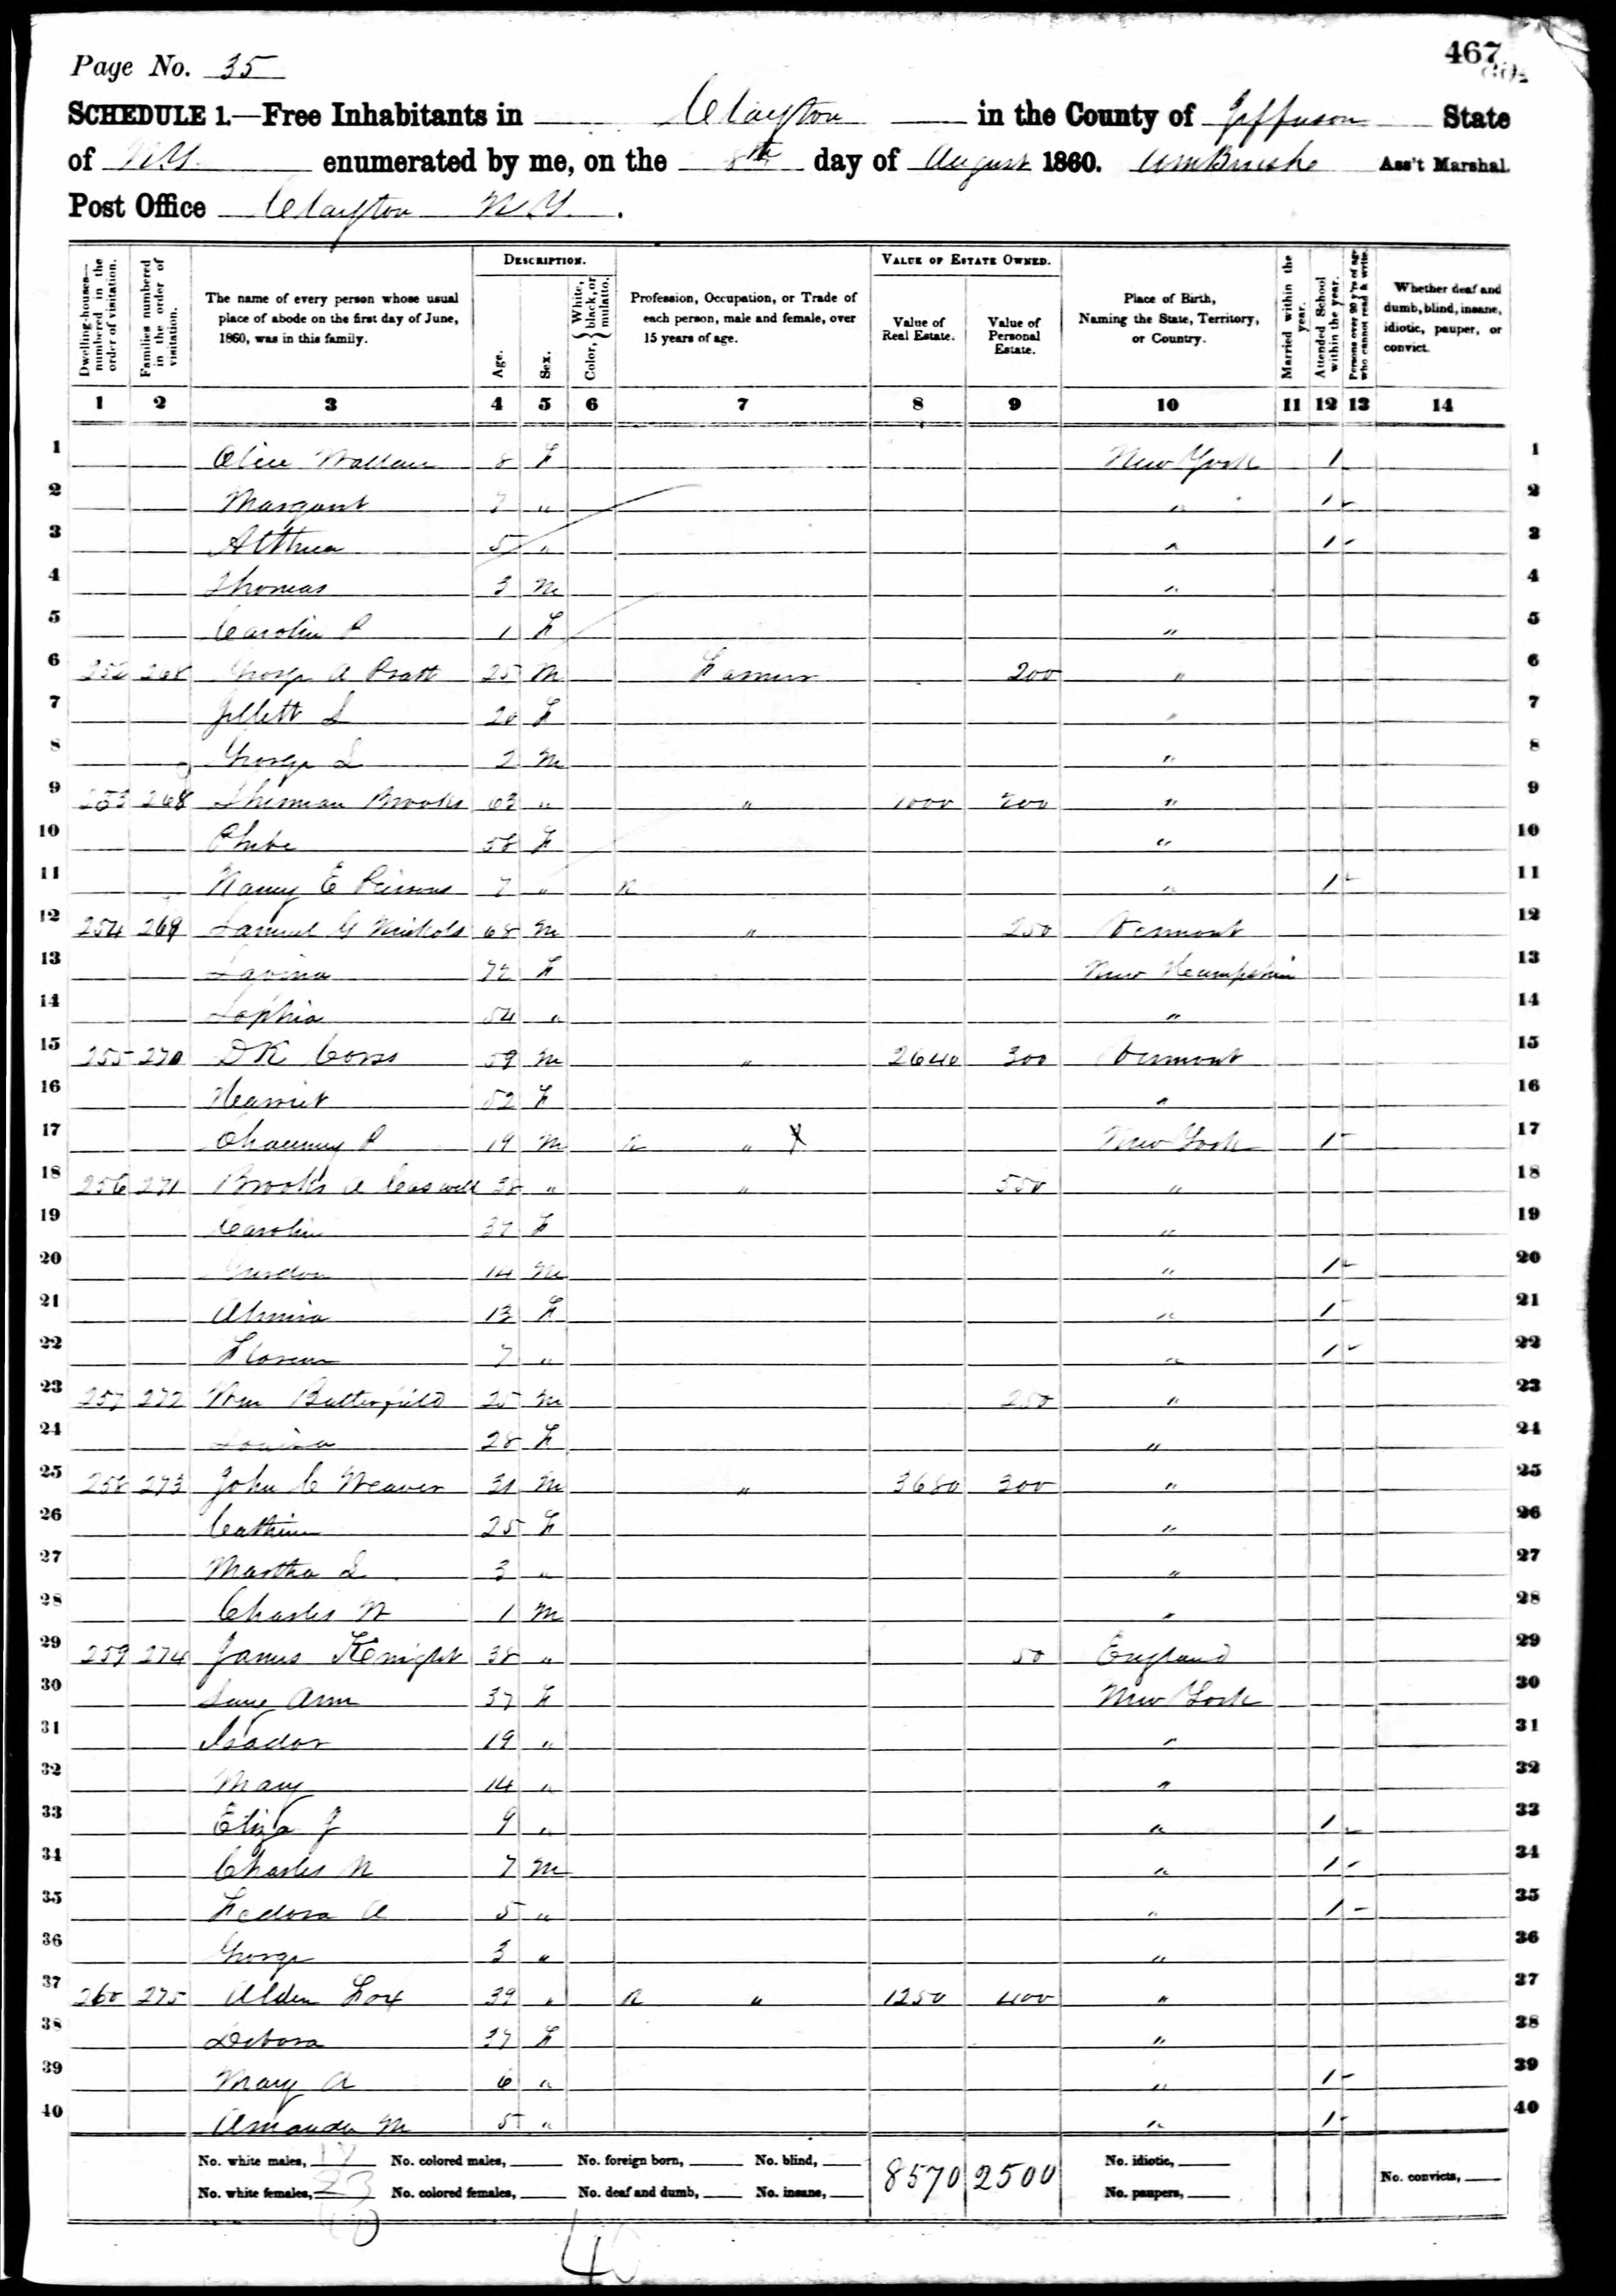 467
Page No. 35
SCHEDULE 1.—Free Inhabitants in Clayton in the County of Jefferson State
of N.Y. enumerated by me, on the 8th day of August 1860. Ass't Marshal.
Post Office Clayton N.Y.
Dwelling-houses—numbered in the order of visitation.
Families numbered in the order of visitation.
The name of every person whose usual place of abode on the first day of June, 1860, was in this family.
DESCRIPTION.
Age.
Sex.
Color, White, black, or mulatto.
Profession, Occupation, or Trade of each person, male and female, over 15 years of age.
VALUE OF ESTATE OWNED.
Value of Real Estate.
Value of Personal Estate.
Place of Birth, Naming the State, Territory, or Country.
Married within the year.
Attended School within the year.
Persons over 20 y'rs of age who cannot read & write.
Whether deaf and dumb, blind, insane, idiotic, pauper, or convict.
1 2 3 4 5 6 7 8 9 10 11 12 13 14
1 Alice Wallace 8 F New York 1 1
2 Margaret 7 " " 1 2
3 5 " " 1 3
4 Thomas 3 M " 4
5 Caroline P 1 F " 5
6 252 268 George A Pratt 25 M Farmer 200 " 6
7 Jillett S 20 F " 7
8 George L 2 M " 8
9 253 268 Sherman Brooks 63 " " 1000 200 " 9
10 Phebe 58 F " 10
11 Nancy E Parsons 7 " " 1 11
12 254 269 Samuel G Nichols 68 M " 250 Vermont 12
13 Lavina 72 F New Hampshire 13
14 Sophia 54 " " 14
15 255 270 D K Corss 59 M " 2640 300 Vermont 15
16 Harriet 52 F " 16
17 Chauncey P 19 M " X New York 1 17
18 256 271 Brooks A Caswell 38 " " 550 " 18
19 Caroline 37 F " 19
20 Gurdon 14 M " 1 20
21 Almira 13 F " 1 21
22 Florence 7 " " 1 22
23 257 272 Wm Butterfield 25 M 250 " 23
24 Louisa 28 F " 24
25 258 273 John C Weaver 31 M " 3680 300 " 25
26 Catherine 25 F " 26
27 Martha L 3 " " 27
28 Charles W 1 M " 28
29 259 274 James Knight 38 " 50 England 29
30 Jane Ann 37 F New York 30
31 Isador 19 " " 31
32 Mary 14 " " 32
33 Eliza J 9 " " 1 33
34 Charles N 7 M " 1 34
35 Fedora A 5 " " 1 35
36 George 3 " " 36
37 260 275 Alden Fox 39 " " 1250 400 " 37
38 Debora 37 F " 38
39 Mary A 6 " " 1 39
40 Amanda M 5 " " 1 40
No. white males, 17 No. colored males, No. foreign born, No. blind, 8570 2500 No. idiotic, No. convicts,
No. white females, 23 No. colored females, No. deaf and dumb, No. insane, No. paupers,
40